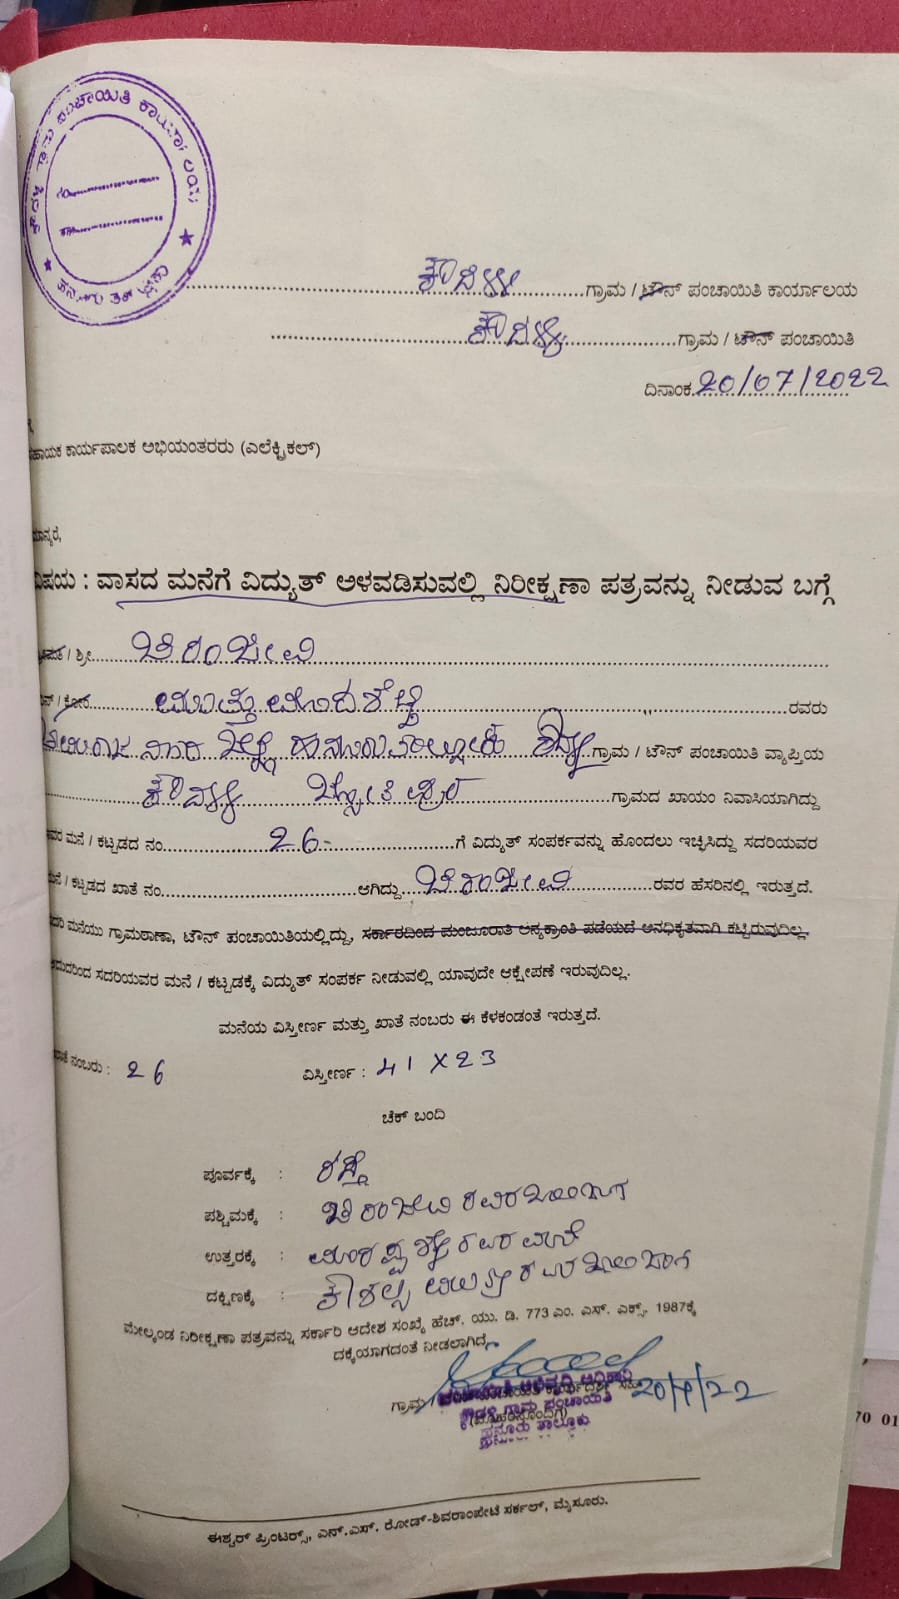 ಪಂಚಾಯಿತಿ ಕಾರ್ಯಾಲಯ
ಹನೂರು ತಾಲ್ಲೂಕು
ಕೌದಳ್ಳಿ ಗ್ರಾಮ / ಟೌನ್ ಪಂಚಾಯಿತಿ ಕಾರ್ಯಾಲಯ
ಕೌದಳ್ಳಿ ಗ್ರಾಮ / ಟೌನ್ ಪಂಚಾಯಿತಿ
ದಿನಾಂಕ 20/07/2022
ಹಾಯಕ ಕಾರ್ಯಪಾಲಕ ಅಭಿಯಂತರರು (ಎಲೆಕ್ಟ್ರಿಕಲ್)
ಮಾನ್ಯರೆ,
ವಿಷಯ : ವಾಸದ ಮನೆಗೆ ವಿದ್ಯುತ್ ಅಳವಡಿಸುವಲ್ಲಿ ನಿರೀಕ್ಷಣಾ ಪತ್ರವನ್ನು ನೀಡುವ ಬಗ್ಗೆ
/ ಶ್ರೀ ಚಿರಂಜೀವಿ
/ ಕೋರ ಮುತ್ತು ರವರು
ಗ್ರಾಮ / ಟೌನ್ ಪಂಚಾಯಿತಿ ವ್ಯಾಪ್ತಿಯ
ಕೌದಳ್ಳಿ ಗ್ರಾಮದ ಖಾಯಂ ನಿವಾಸಿಯಾಗಿದ್ದು
ಮನೆ / ಕಟ್ಟಡದ ನಂ 26 ಗೆ ವಿದ್ಯುತ್ ಸಂಪರ್ಕವನ್ನು ಹೊಂದಲು ಇಚ್ಛಿಸಿದ್ದು ಸದರಿಯವರ
ಮನೆ / ಕಟ್ಟಡದ ಖಾತೆ ನಂ ಆಗಿದ್ದು ಚಿರಂಜೀವಿ ರವರ ಹೆಸರಿನಲ್ಲಿ ಇರುತ್ತದೆ.
ಸದರಿ ಮನೆಯು ಗ್ರಾಮಠಾಣಾ, ಟೌನ್ ಪಂಚಾಯಿತಿಯಲ್ಲಿದ್ದು, ಸರ್ಕಾರದಿಂದ ಮಂಜೂರಾತಿ ಅನ್ಯಕ್ರಾಂತಿ ಪಡೆಯದೆ ಅನಧಿಕೃತವಾಗಿ ಕಟ್ಟಿರುವುದಿಲ್ಲ.
ಆದುದರಿಂದ ಸದರಿಯವರ ಮನೆ / ಕಟ್ಟಡಕ್ಕೆ ವಿದ್ಯುತ್ ಸಂಪರ್ಕ ನೀಡುವಲ್ಲಿ ಯಾವುದೇ ಆಕ್ಷೇಪಣೆ ಇರುವುದಿಲ್ಲ.
ಮನೆಯ ವಿಸ್ತೀರ್ಣ ಮತ್ತು ಖಾತೆ ನಂಬರು ಈ ಕೆಳಕಂಡಂತೆ ಇರುತ್ತದೆ.
ಖಾತೆ ನಂಬರು : 26 ವಿಸ್ತೀರ್ಣ : 41 X 23
ಚೆಕ್ ಬಂದಿ
ಪೂರ್ವಕ್ಕೆ : ರಸ್ತೆ
ಪಶ್ಚಿಮಕ್ಕೆ : ಚಿರಂಜೀವಿ ರವರ
ಉತ್ತರಕ್ಕೆ : ರವರ ಮನೆ
ದಕ್ಷಿಣಕ್ಕೆ : ಕೌಶಲ್ಯ
ಮೇಲ್ಕಂಡ ನಿರೀಕ್ಷಣಾ ಪತ್ರವನ್ನು ಸರ್ಕಾರಿ ಆದೇಶ ಸಂಖ್ಯೆ ಹೆಚ್. ಯು. ಡಿ. 773 ಎಂ. ಎಸ್. ಎಕ್ಸ್. 1987ಕ್ಕೆ
ದಕ್ಕೆಯಾಗದಂತೆ ನೀಡಲಾಗಿದೆ
ಪಂಚಾಯಿತಿ ಅಭಿವೃದ್ಧಿ ಅಧಿಕಾರಿ
ಗ್ರಾಮ / 20/7/22
ಕೌದಳ್ಳಿ ಗ್ರಾಮ ಪಂಚಾಯಿತಿ
ಹನೂರು ತಾಲ್ಲೂಕು
70 01
ಈಶ್ವರ್ ಪ್ರಿಂಟರ್ಸ್, ಎನ್.ಎಸ್. ರೋಡ್-ಶಿವರಾಂಪೇಟೆ ಸರ್ಕಲ್, ಮೈಸೂರು.